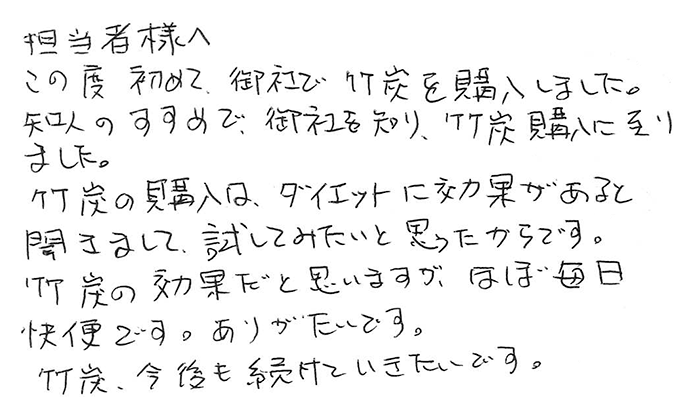 担当者様へ
この度 初めて、御社で 竹炭を購入しました。
知人のすすめで、御社を知り、竹炭購入に至り
ました。
竹炭の購入は、ダイエットに効果があると
聞きまして、試してみたいと思ったからです。
竹炭の効果だと思いますが、ほぼ毎日
快便です。ありがたいです。
竹炭、今後も続けていきたいです。